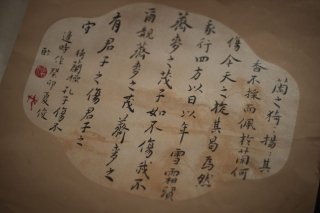 蘭之猗〻揚〻其
香不採而佩於蘭何
傷今天之旋其曷為然
我行四方以日以年雪霜貿〻
薺麥之茂子如不傷我不
爾覯薺麥之茂薺麥之
有君子之傷君子之
守 猗蘭操孔子傷不
逢時作癸卯夏俊